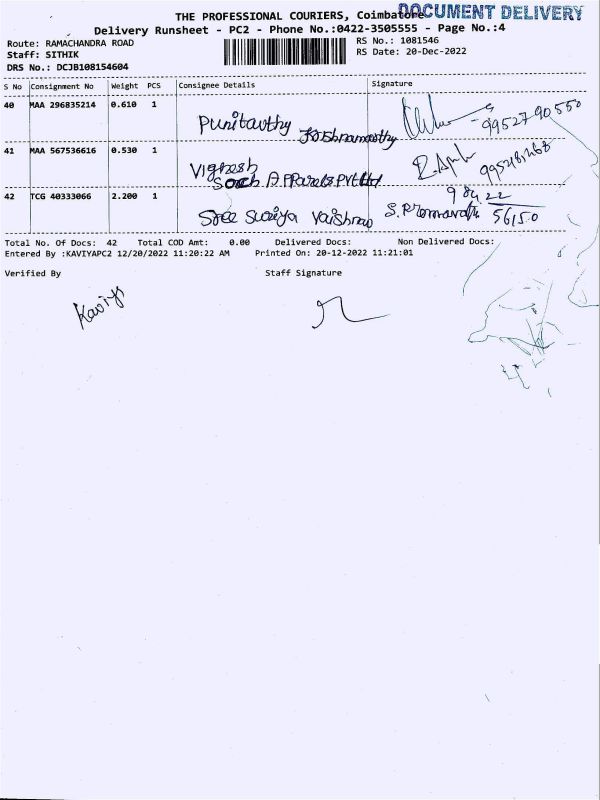 THE PROFESSIONAL COURIERS, Coimbatore
DOCUMENT DELIVERY
Delivery Runsheet - PC2 - Phone No.:0422-3505555 - Page No.:4
Route: RAMACHANDRA ROAD
RS No.: 1081546
Staff: SITHIK
RS Date: 20-Dec-2022
DRS No.: DCJB108154604
S No Consignment No Weight PCS Consignee Details Signature
40 MAA 296835214 0.610 1
Punitavthy Krishnamoorthy
9952790550
41 MAA 567536616 0.530 1
Vignesh
Apparels Pvt Ltd
42 TCG 40333066 2.200 1
Sree Vaishnav
98422
56150
Total No. Of Docs: 42 Total COD Amt: 0.00 Delivered Docs: Non Delivered Docs:
Entered By :KAVIYAPC2 12/20/2022 11:20:22 AM Printed On: 20-12-2022 11:21:01
Verified By Staff Signature
Kaviya